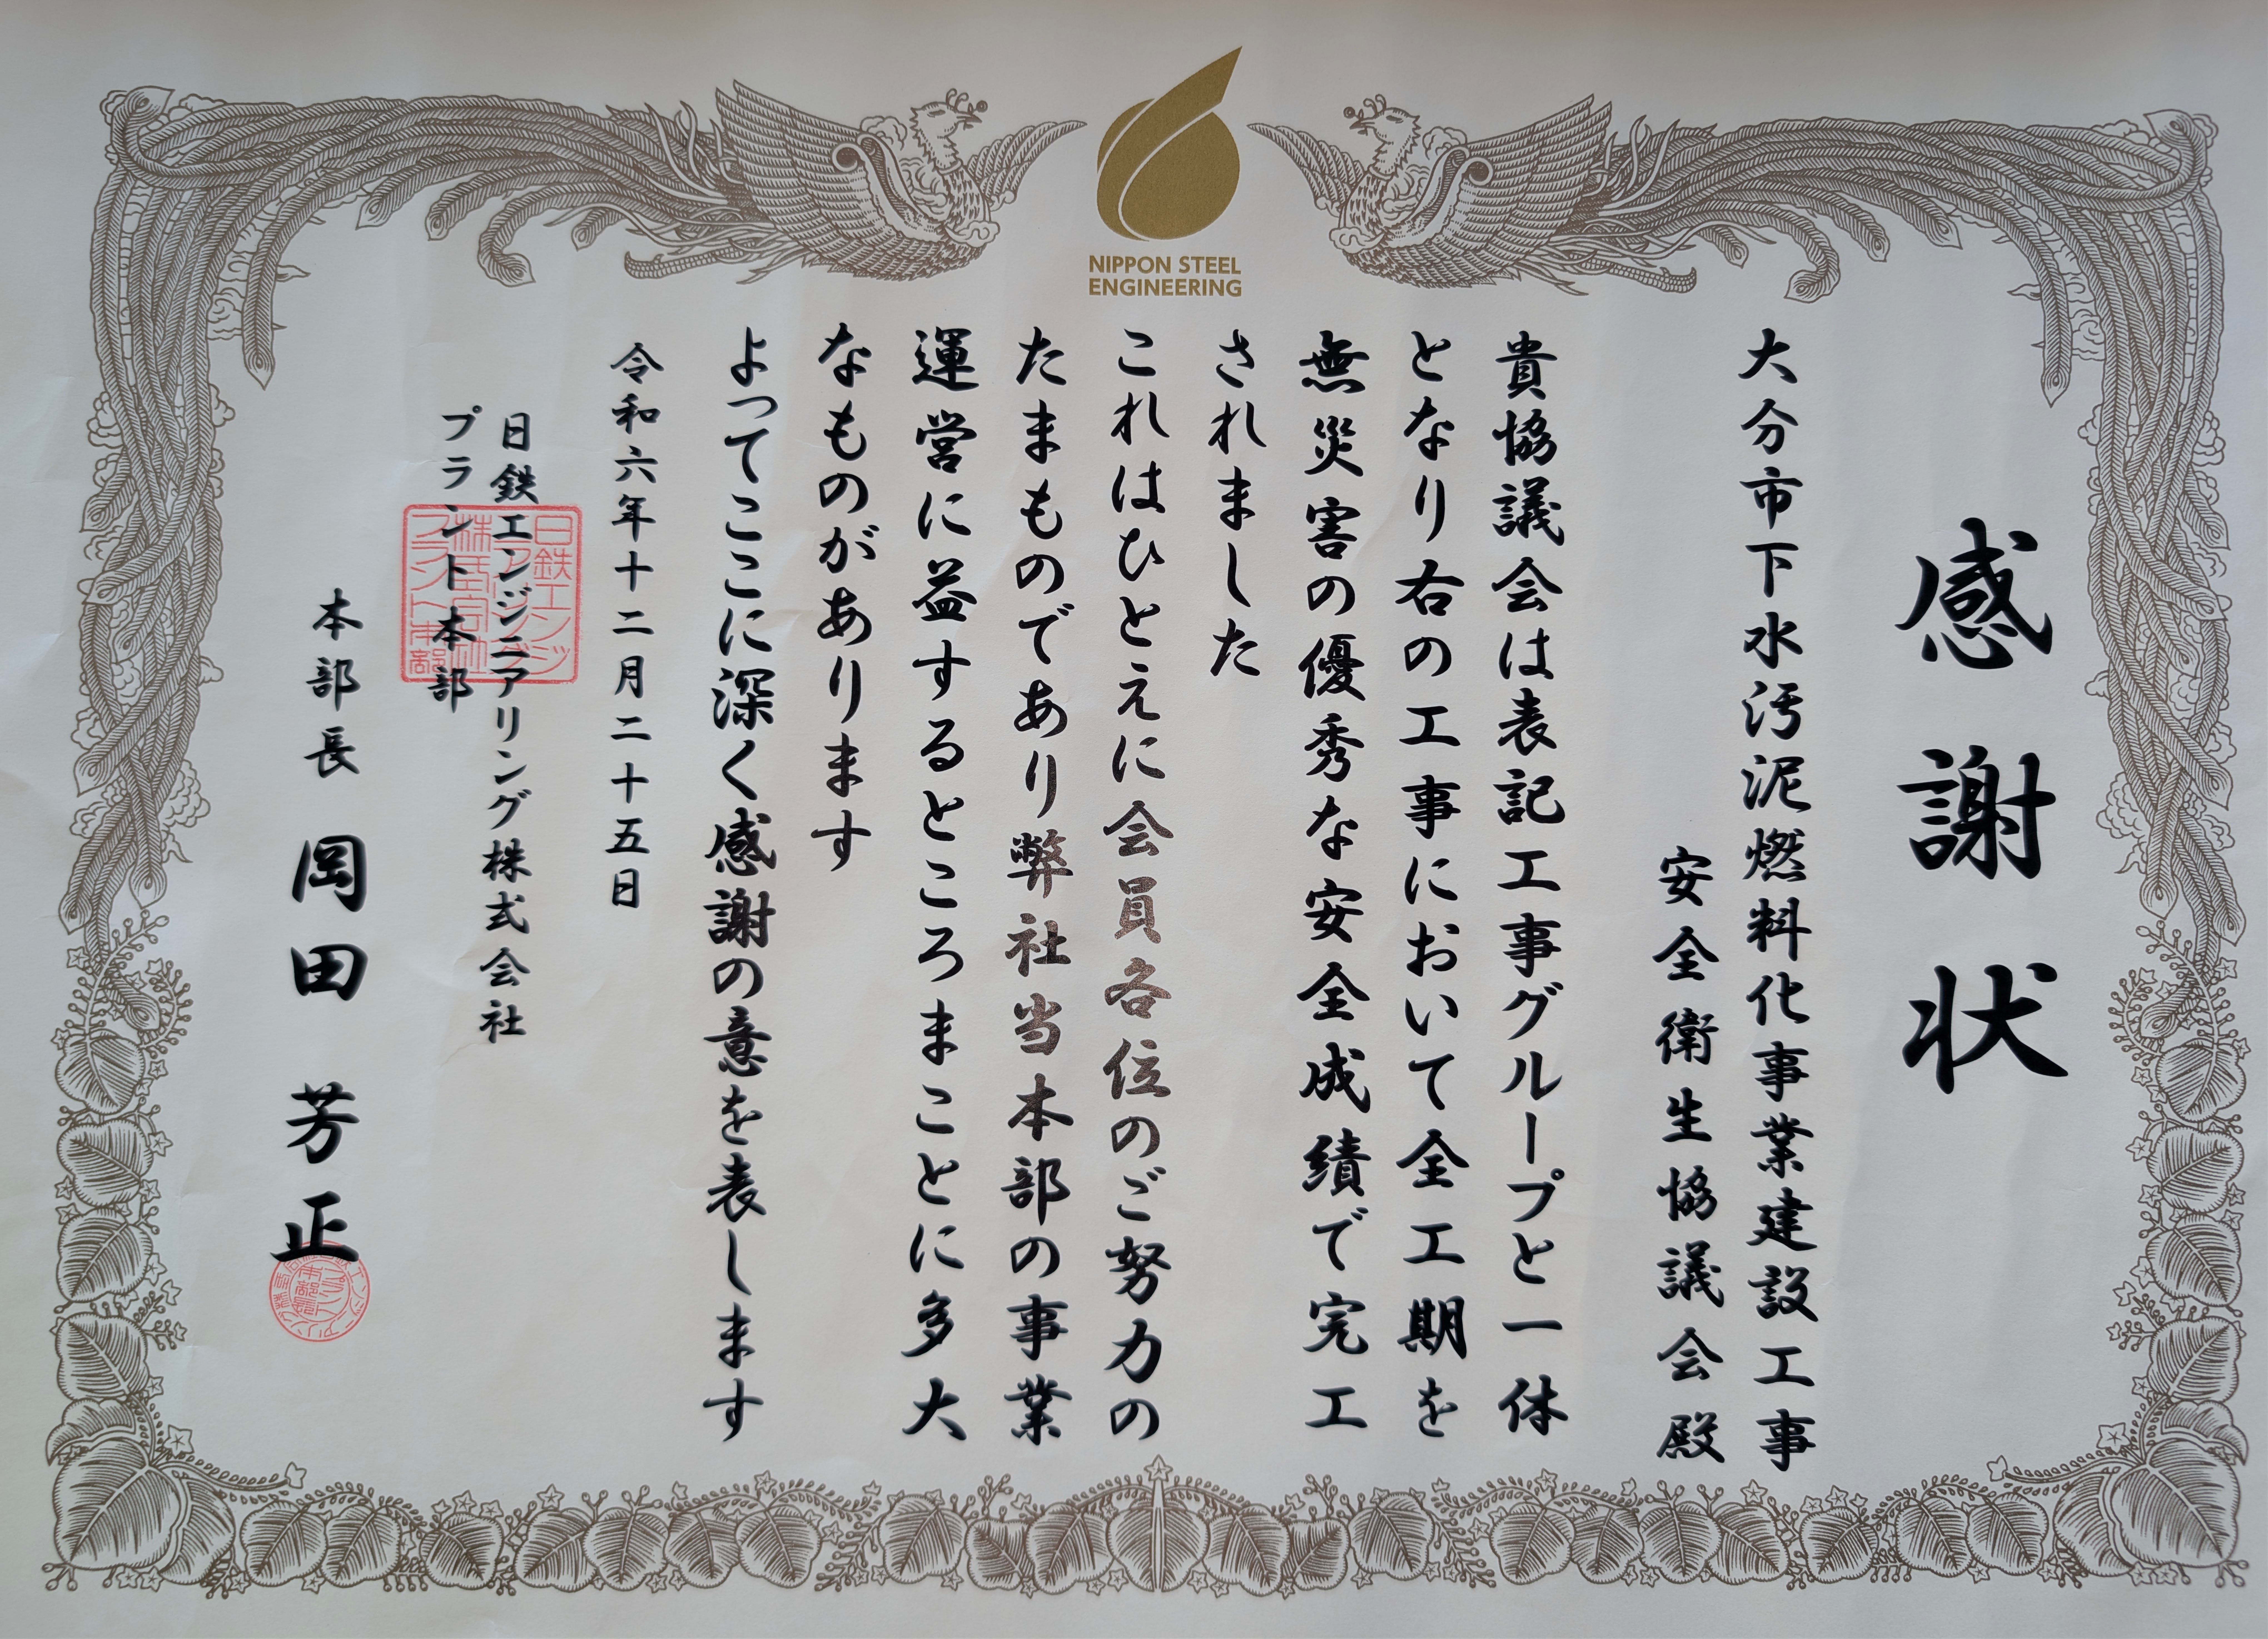 NIPPON STEEL
ENGINEERING
感謝状
大分市下水汚泥燃料化事業建設工事
安全衛生協議会殿
貴協議会は表記工事グループと一体
となり右の工事において全工期を
無災害の優秀な安全成績で完工
されました
これはひとえに会員各位のご努力の
たまものであり弊社当本部の事業
運営に益するところまことに多大
なものがあります
よってここに深く感謝の意を表します
令和六年十二月二十五日
日鉄エンジニアリング株式会社
プラント本部
本部長 岡田芳正